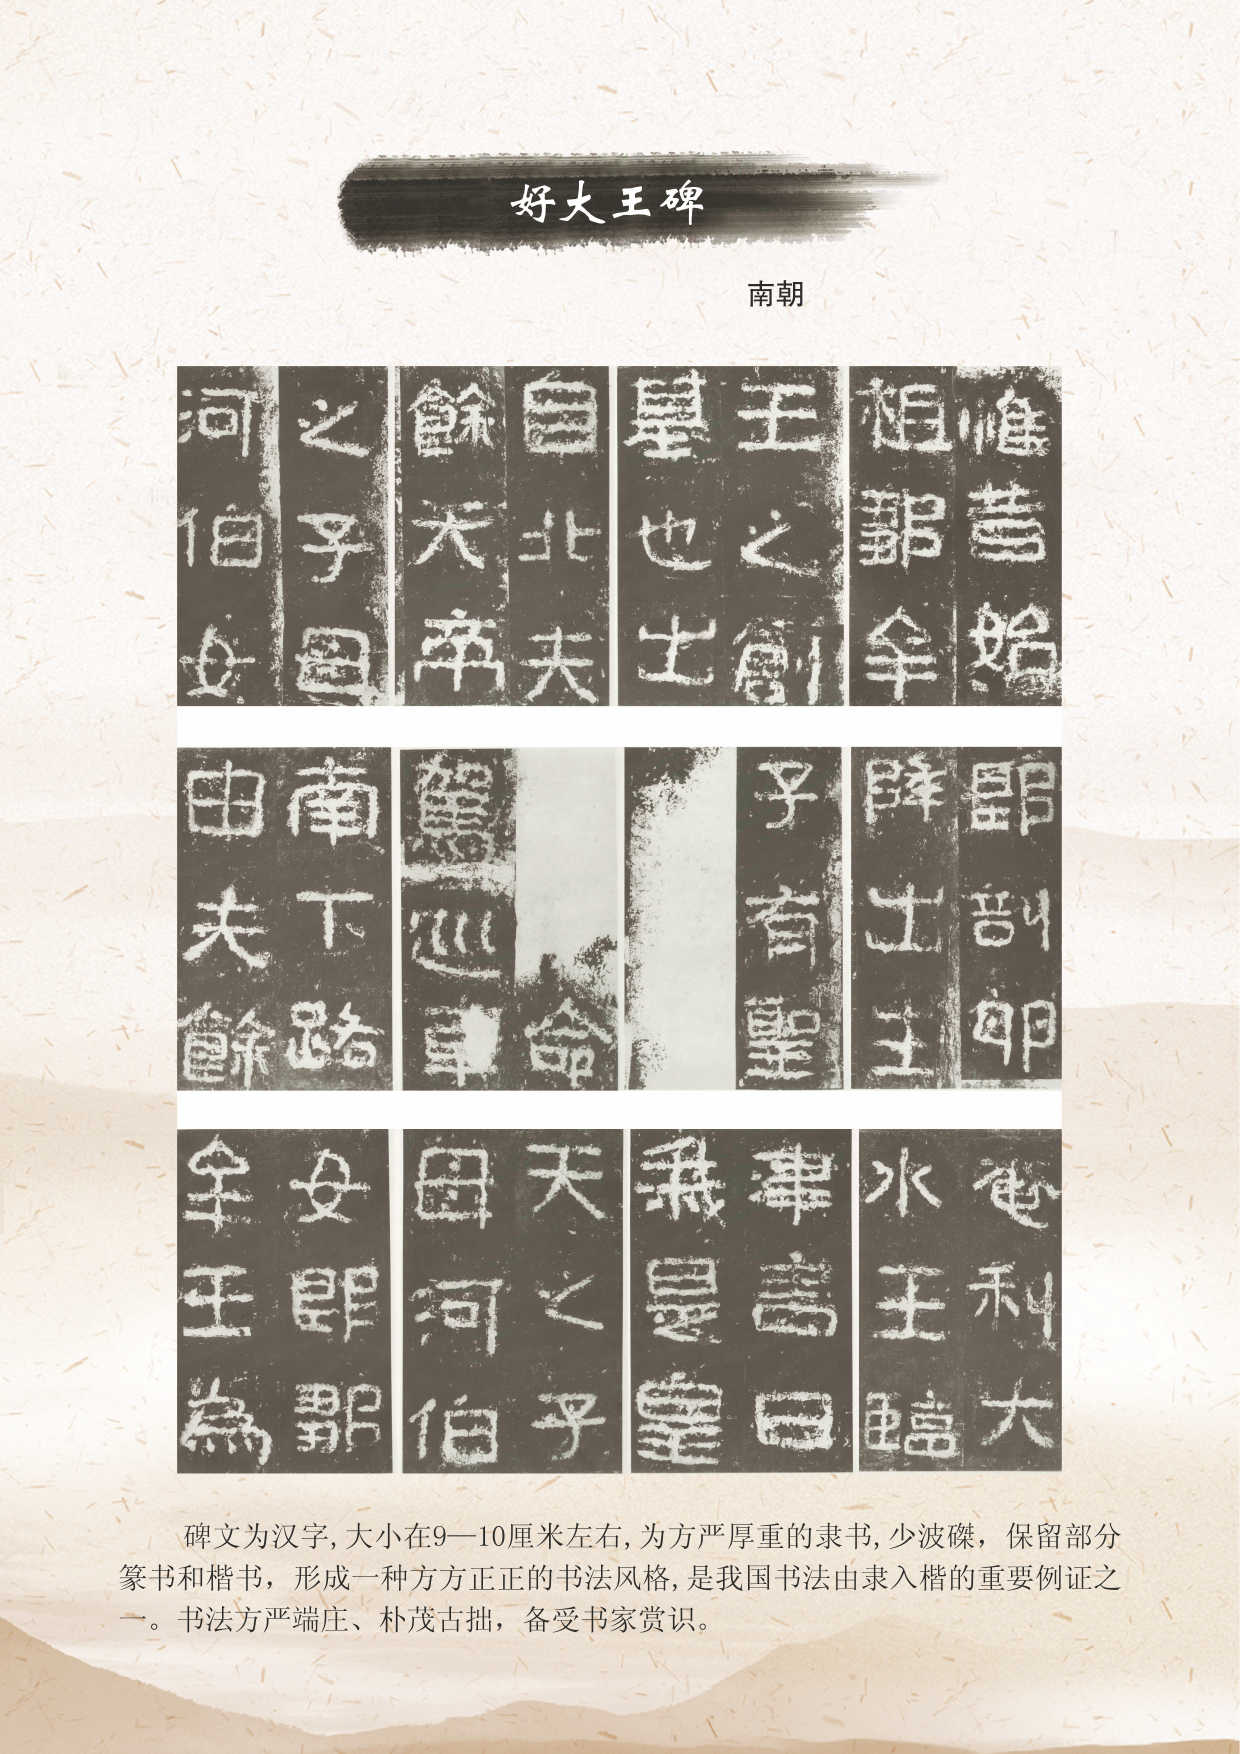 好大王碑
南朝
惟昔始
祖鄒牟
王之創
基也出
自北夫
餘天帝
之子母
河伯女
郎剖卵
降出生
子有聖
命
駕巡車
南下路
由夫餘
奄利大
水王臨
津言曰
我是皇
天之子
母河伯
女郎鄒
牟王為
碑文为汉字,大小在9—10厘米左右,为方严厚重的隶书,少波磔，保留部分
篆书和楷书，形成一种方方正正的书法风格,是我国书法由隶入楷的重要例证之
一。书法方严端庄、朴茂古拙，备受书家赏识。